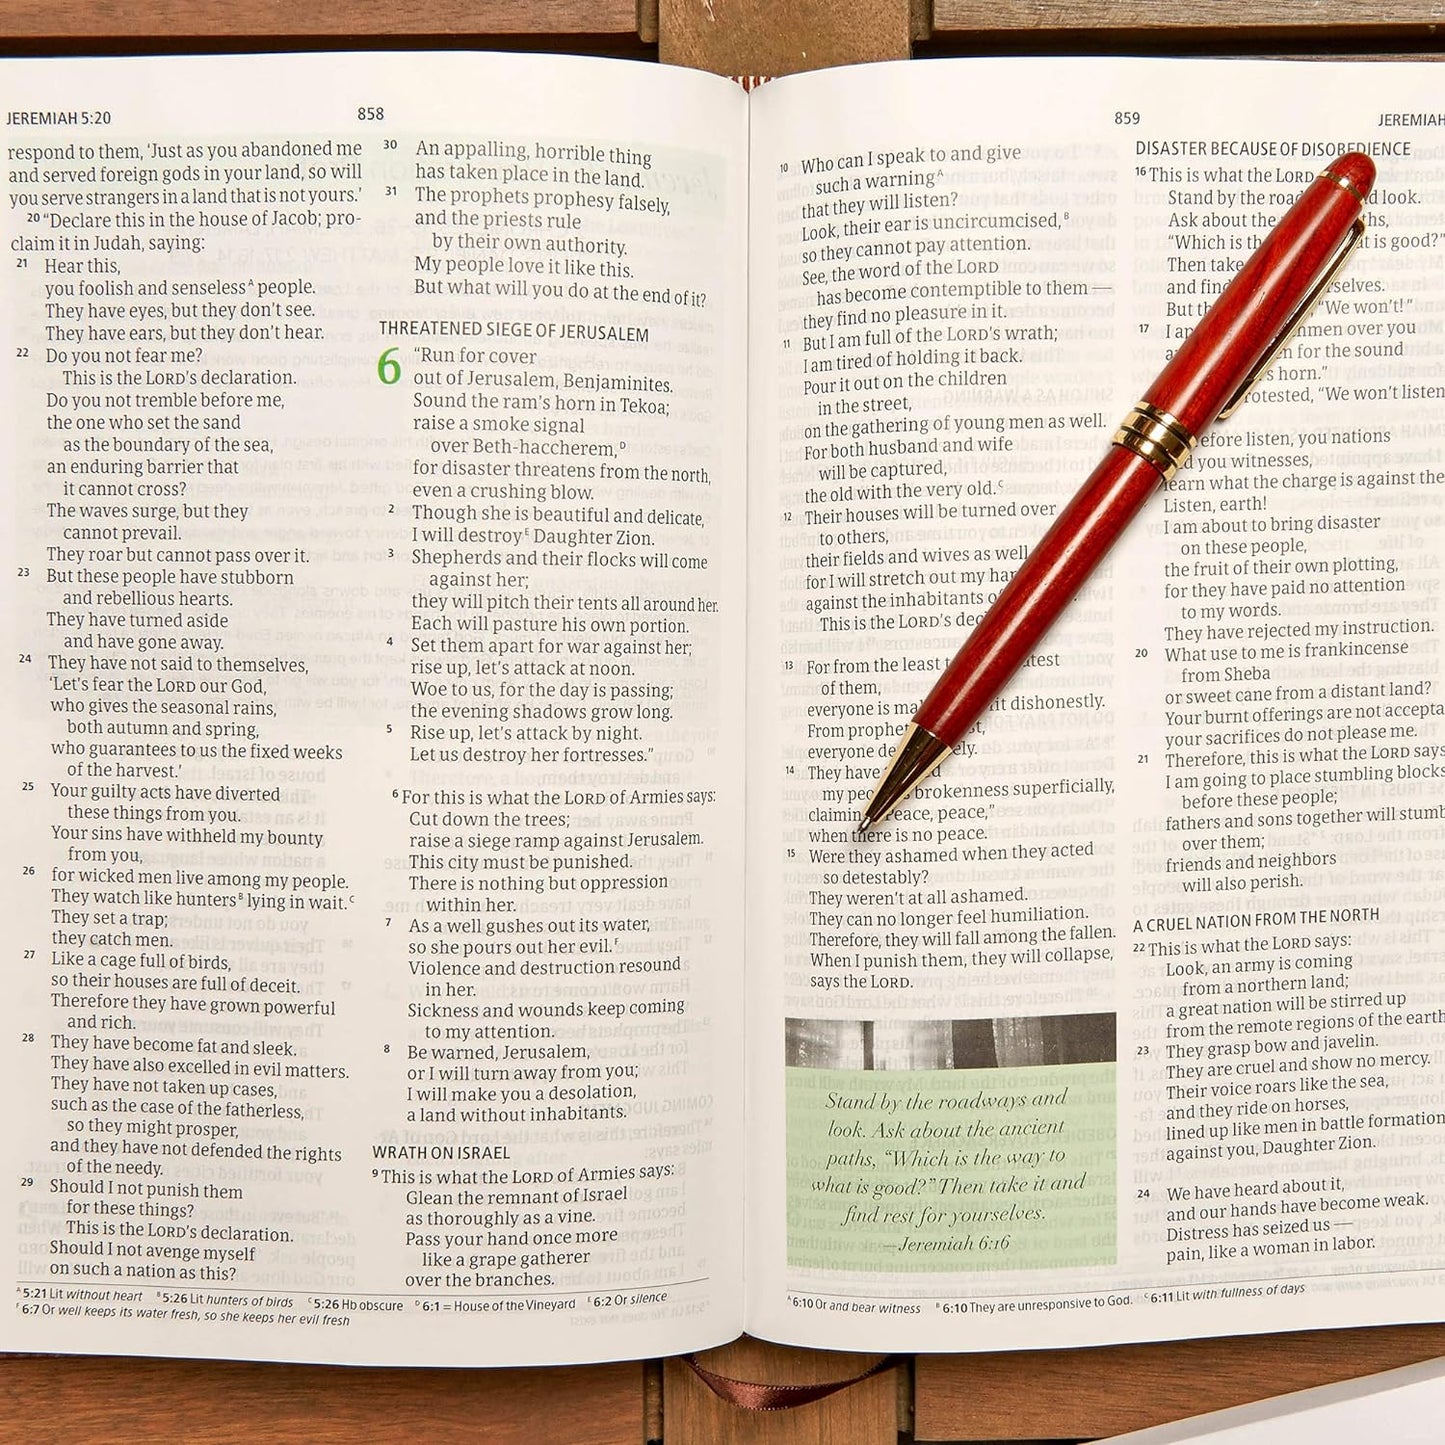 JEREMIAH 5:20
858
respond to them, ‘Just as you abandoned me
and served foreign gods in your land, so will
you serve strangers in a land that is not yours.’
20 “Declare this in the house of Jacob; pro-
claim it in Judah, saying:
21 Hear this,
you foolish and senseless A people.
They have eyes, but they don’t see.
They have ears, but they don’t hear.
22 Do you not fear me?
This is the LORD’s declaration.
Do you not tremble before me,
the one who set the sand
as the boundary of the sea,
an enduring barrier that
it cannot cross?
The waves surge, but they
cannot prevail.
They roar but cannot pass over it.
23 But these people have stubborn
and rebellious hearts.
They have turned aside
and have gone away.
24 They have not said to themselves,
‘Let’s fear the LORD our God,
who gives the seasonal rains,
both autumn and spring,
who guarantees to us the fixed weeks
of the harvest.’
25 Your guilty acts have diverted
these things from you.
Your sins have withheld my bounty
from you,
26 for wicked men live among my people.
They watch like hunters B lying in wait. C
They set a trap;
they catch men.
27 Like a cage full of birds,
so their houses are full of deceit.
Therefore they have grown powerful
and rich.
28 They have become fat and sleek.
They have also excelled in evil matters.
They have not taken up cases,
such as the case of the fatherless,
so they might prosper,
and they have not defended the rights
of the needy.
29 Should I not punish them
for these things?
This is the LORD’s declaration.
Should I not avenge myself
on such a nation as this?
30 An appalling, horrible thing
has taken place in the land.
31 The prophets prophesy falsely,
and the priests rule
by their own authority.
My people love it like this.
But what will you do at the end of it?
THREATENED SIEGE OF JERUSALEM
6 “Run for cover
out of Jerusalem, Benjaminites.
Sound the ram’s horn in Tekoa;
raise a smoke signal
over Beth-haccherem, D
for disaster threatens from the north,
even a crushing blow.
2 Though she is beautiful and delicate,
I will destroy E Daughter Zion.
3 Shepherds and their flocks will come
against her;
they will pitch their tents all around her.
Each will pasture his own portion.
4 Set them apart for war against her;
rise up, let’s attack at noon.
Woe to us, for the day is passing;
the evening shadows grow long.
5 Rise up, let’s attack by night.
Let us destroy her fortresses.”
6 For this is what the LORD of Armies says:
Cut down the trees;
raise a siege ramp against Jerusalem.
This city must be punished.
There is nothing but oppression
within her.
7 As a well gushes out its water,
so she pours out her evil. F
Violence and destruction resound
in her.
Sickness and wounds keep coming
to my attention.
8 Be warned, Jerusalem,
or I will turn away from you;
I will make you a desolation,
a land without inhabitants.
WRATH ON ISRAEL
9 This is what the LORD of Armies says:
Glean the remnant of Israel
as thoroughly as a vine.
Pass your hand once more
like a grape gatherer
over the branches.
A 5:21 Lit without heart B 5:26 Lit hunters of birds C 5:26 Hb obscure D 6:1 = House of the Vineyard E 6:2 Or silence
F 6:7 Or well keeps its water fresh, so she keeps her evil fresh
859
JEREMIAH
10 Who can I speak to and give
such a warning A
that they will listen?
Look, their ear is uncircumcised, B
so they cannot pay attention.
See, the word of the LORD
has become contemptible to them —
they find no pleasure in it.
11 But I am full of the LORD’s wrath;
I am tired of holding it back.
Pour it out on the children
in the street,
on the gathering of young men as well.
For both husband and wife
will be captured,
the old with the very old. C
12 Their houses will be turned over
to others,
their fields and wives as well
for I will stretch out my
against the inhabitants
This is the LORD’s
13 For from the least
of them,
everyone is dishonestly.
From
everyone
14 They have
my brokenness superficially,
claiming peace, peace,”
when there is no peace.
15 Were they ashamed when they acted
so detestably?
They weren’t at all ashamed.
They can no longer feel humiliation.
Therefore, they will fall among the fallen.
When I punish them, they will collapse,
says the LORD.
Stand by the roadways and
look. Ask about the ancient
paths, “Which is the way to
what is good?” Then take it and
find rest for yourselves.
—Jeremiah 6:16
A 6:10 Or and bear witness B 6:10 They are unresponsive to God. C 6:11 Lit with fullness of days
DISASTER BECAUSE OF DISOBEDIENCE
16 This is what the LORD
Stand by the look.
Ask about the
“Which is is good?”
Then take
and find
But “We won’t!”
17 I over you
for the sound
horn.”
“We won’t listen
listen, you nations
you witnesses,
learn what the charge is against the
Listen, earth!
I am about to bring disaster
on these people,
the fruit of their own plotting,
for they have paid no attention
to my words.
They have rejected my instruction.
20 What use to me is frankincense
from Sheba
or sweet cane from a distant land?
Your burnt offerings are not
your sacrifices do not please me.
21 Therefore, this is what the LORD says
I am going to place stumbling blocks
before these people;
fathers and sons together will
over them;
friends and neighbors
will also perish.
A CRUEL NATION FROM THE NORTH
22 This is what the LORD says:
Look, an army is coming
from a northern land;
a great nation will be stirred up
from the remote regions of the earth
23 They grasp bow and javelin.
They are cruel and show no mercy.
Their voice roars like the sea,
and they ride on horses,
lined up like men in battle formation
against you, Daughter Zion.
24 We have heard about it,
and our hands have become weak.
Distress has seized us —
pain, like a woman in labor.